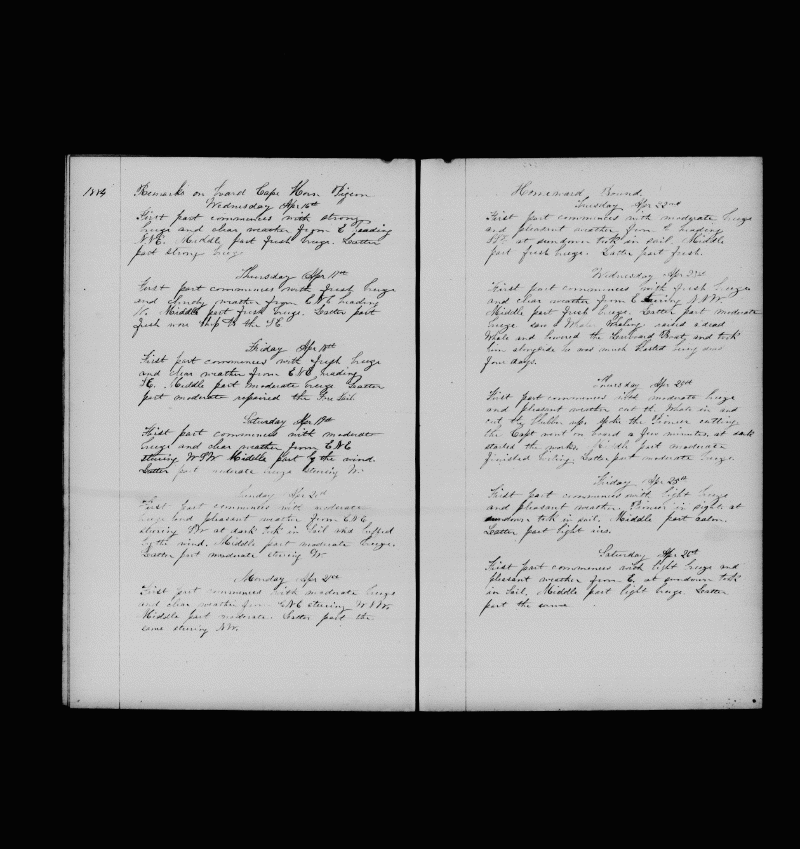 1884
Remarks on board Cape Horn Pigeon
Wednesday Apr 16th
First part commences with strong
breeze and clear weather from E heading
NNE. Middle part fresh breeze. Latter
part strong breeze
Thursday Apr 17th
First part commences with fresh breeze
and cloudy weather from ENE heading
N. Middle part fresh breeze. Latter part
fresh wore ship to the SE
Friday Apr 18th
First part commences with fresh breeze
and clear weather from ENE heading
SE. Middle part moderate breeze Latter
part moderate repaired the Fore Sail
Saturday Apr 19th
First part commences with moderate
breeze and clear weather from ENE
steering WSW Middle part by the wind.
Latter part moderate breeze steering W.
Sunday Apr 20th
First part commences with moderate
breeze and pleasant weather from ENE
steering W at dark tok in Sail and luffed
by the wind. Middle part moderate breeze.
Latter part moderate steering W
Monday Apr 21st
First part commences with moderate breeze
and clear weather from ENE steering WNW.
Middle part moderate. Latter part the
same steering NW.
Homeward Bound.
Tuesday Apr 22nd
First part commences with moderate breeze
and pleasant weather from E heading
at sundown tok in sail. Middle
part fresh breeze. Latter part fresh.
Wednesday Apr 23rd
First part commences with fresh breeze
and clear weather from E steering NNW.
Middle part fresh breeze. Latter part moderate
breeze saw a Whale Whaling raised a dead
Whale and lowered the Larboard Boat, and tok
him alongside he was much blasted being dead
four days.
Thursday Apr 24th
First part commences with moderate breeze
and pleasant weather cut the Whale in and
cut the Blubber up. Spoke the Pioneer cutting
the Capt went on board a few minutes at dark
started the works. Middle part moderate
finished boiling. Latter part moderate breeze.
Friday Apr 25th
First part commences with light breeze
and pleasant weather Pioneer in sight at
sundown tok in sail. Middle part calm.
Latter part light airs.
Saturday Apr 26th
First part commences with light breeze and
pleasant weather from E. at sundown tok
in Sail. Middle part light breeze. Latter
part the same.